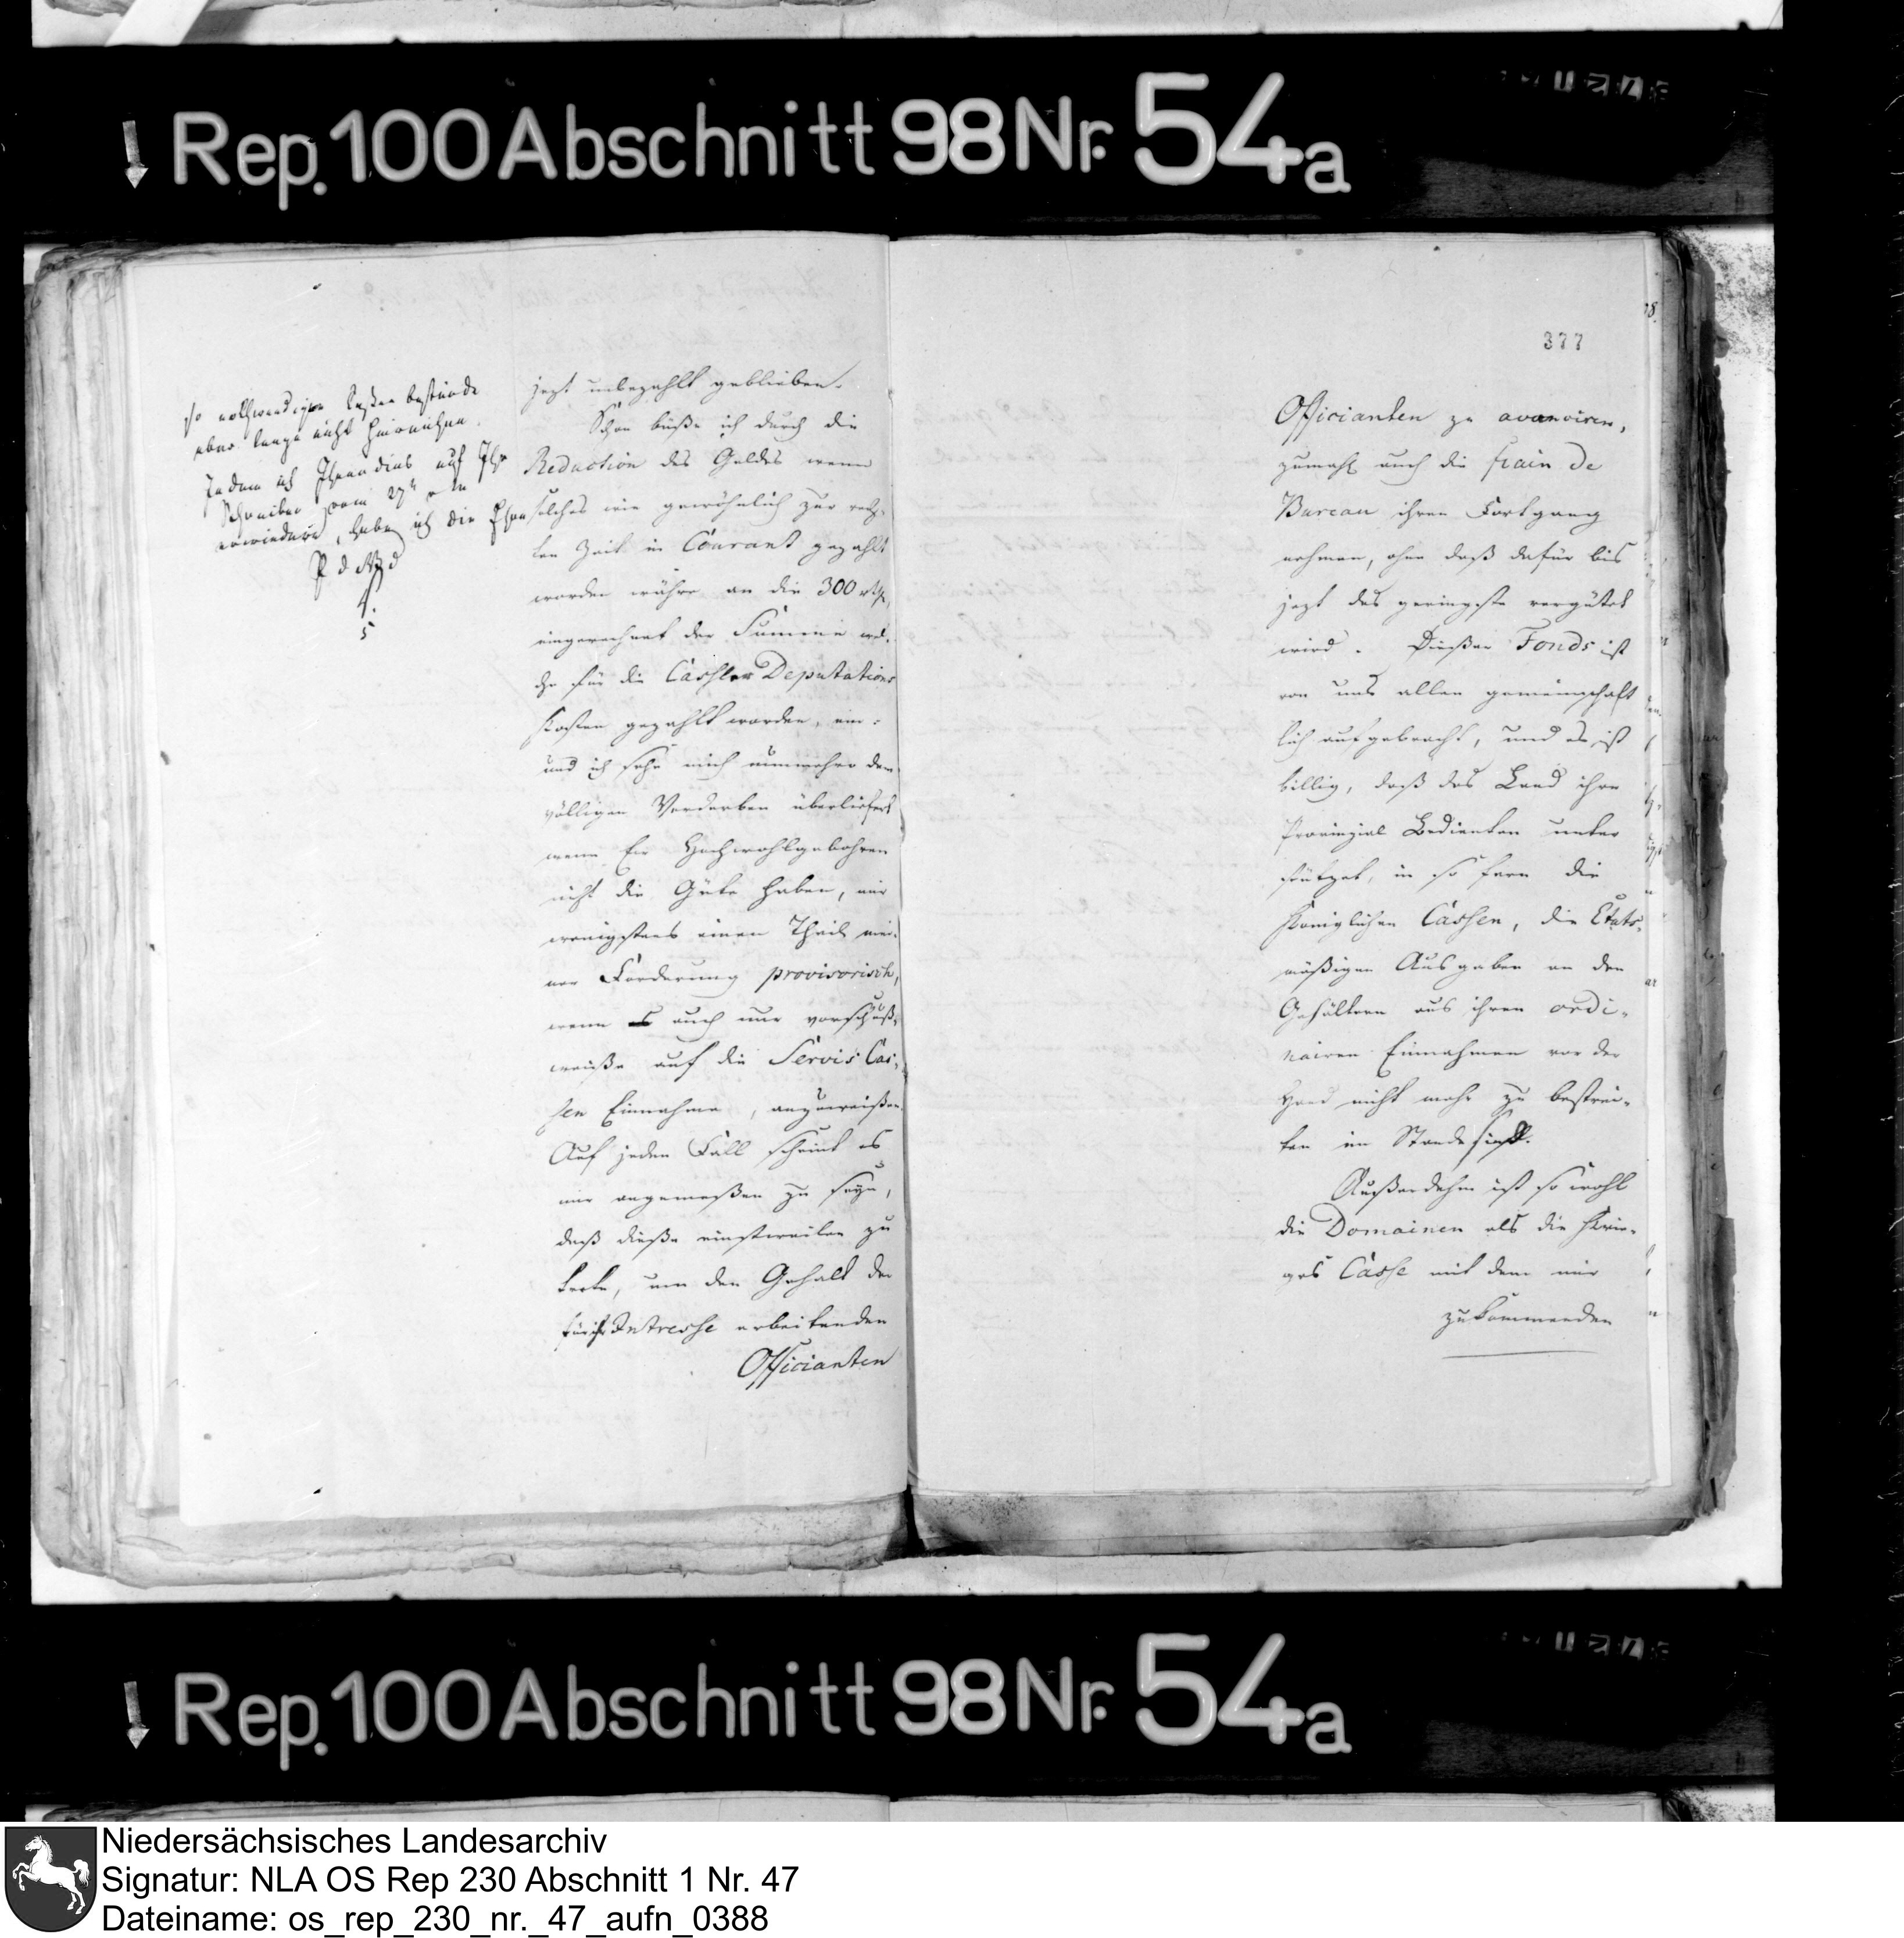 Rep. 100 Abschnitt 98 Nr. 54a
377
so nothwendigen Cassenbestände
aber lange nicht hinreichen.
Indem ich Ihnen dies auf Ihr
Schreiben vom 27t v M
erwiedere, habe ich die Ehre
P d M d
jezt unbezahlt geblieben.
Schon büße ich durch die
Reduction des Geldes wenn
solches wie gewöhnlich zur rech-
ten Zeit in Courant gezahlt
worden währe an die 300 rthr,
eingerechnet der Summe wel-
che für die Cassler Deputations
Kosten gezahlt worden, ein:
und ich sehe mich nunmehro dem
völligen Verderben überliefert
wenn Ew Hochwohlgebohren
nicht die Güte haben, mir
wenigstens einen Theil mei-
ner Forderung provisorisch,
wenn es auch nur vorschuß-
weiße auf die Servis Cas-
sen Einnahme, anzuweißen.
Auf jeden Fall scheint es
mir angemeßen zu seyn,
daß dieße einstweilen zu
trete, um den Gehalt der
für ihr Intresse arbeitenden
Officianten
Officianten zu avanciren,
zumahl auch die frain de
Bureau ihren Fortgang
nehmen, ohne daß dafür bis
jezt das geringste vergütet
wird. Dießer Fonds ist
von uns allen gemeinschaft
lich aufgebracht, und es ist
billig, daß das Land ihre
Provinzial Bedienten unter
stützet, in so fern die
Königlichen Cassen, die Etats-
mäßigen Ausgaben an den
Gehältern aus ihren ordi-
nairen Einnahmen vor der
Hand nicht mehr zu bestrei-
ten im Stande sind.
Außerdehm ist so wohl
die Domainen als die Krie-
ges Casse mit dem mir
zukommenden
Rep. 100 Abschnitt 98 Nr. 54a
Niedersächsisches Landesarchiv
Signatur: NLA OS Rep 230 Abschnitt 1 Nr. 47
Dateiname: os_rep_230_nr._47_aufn_0388